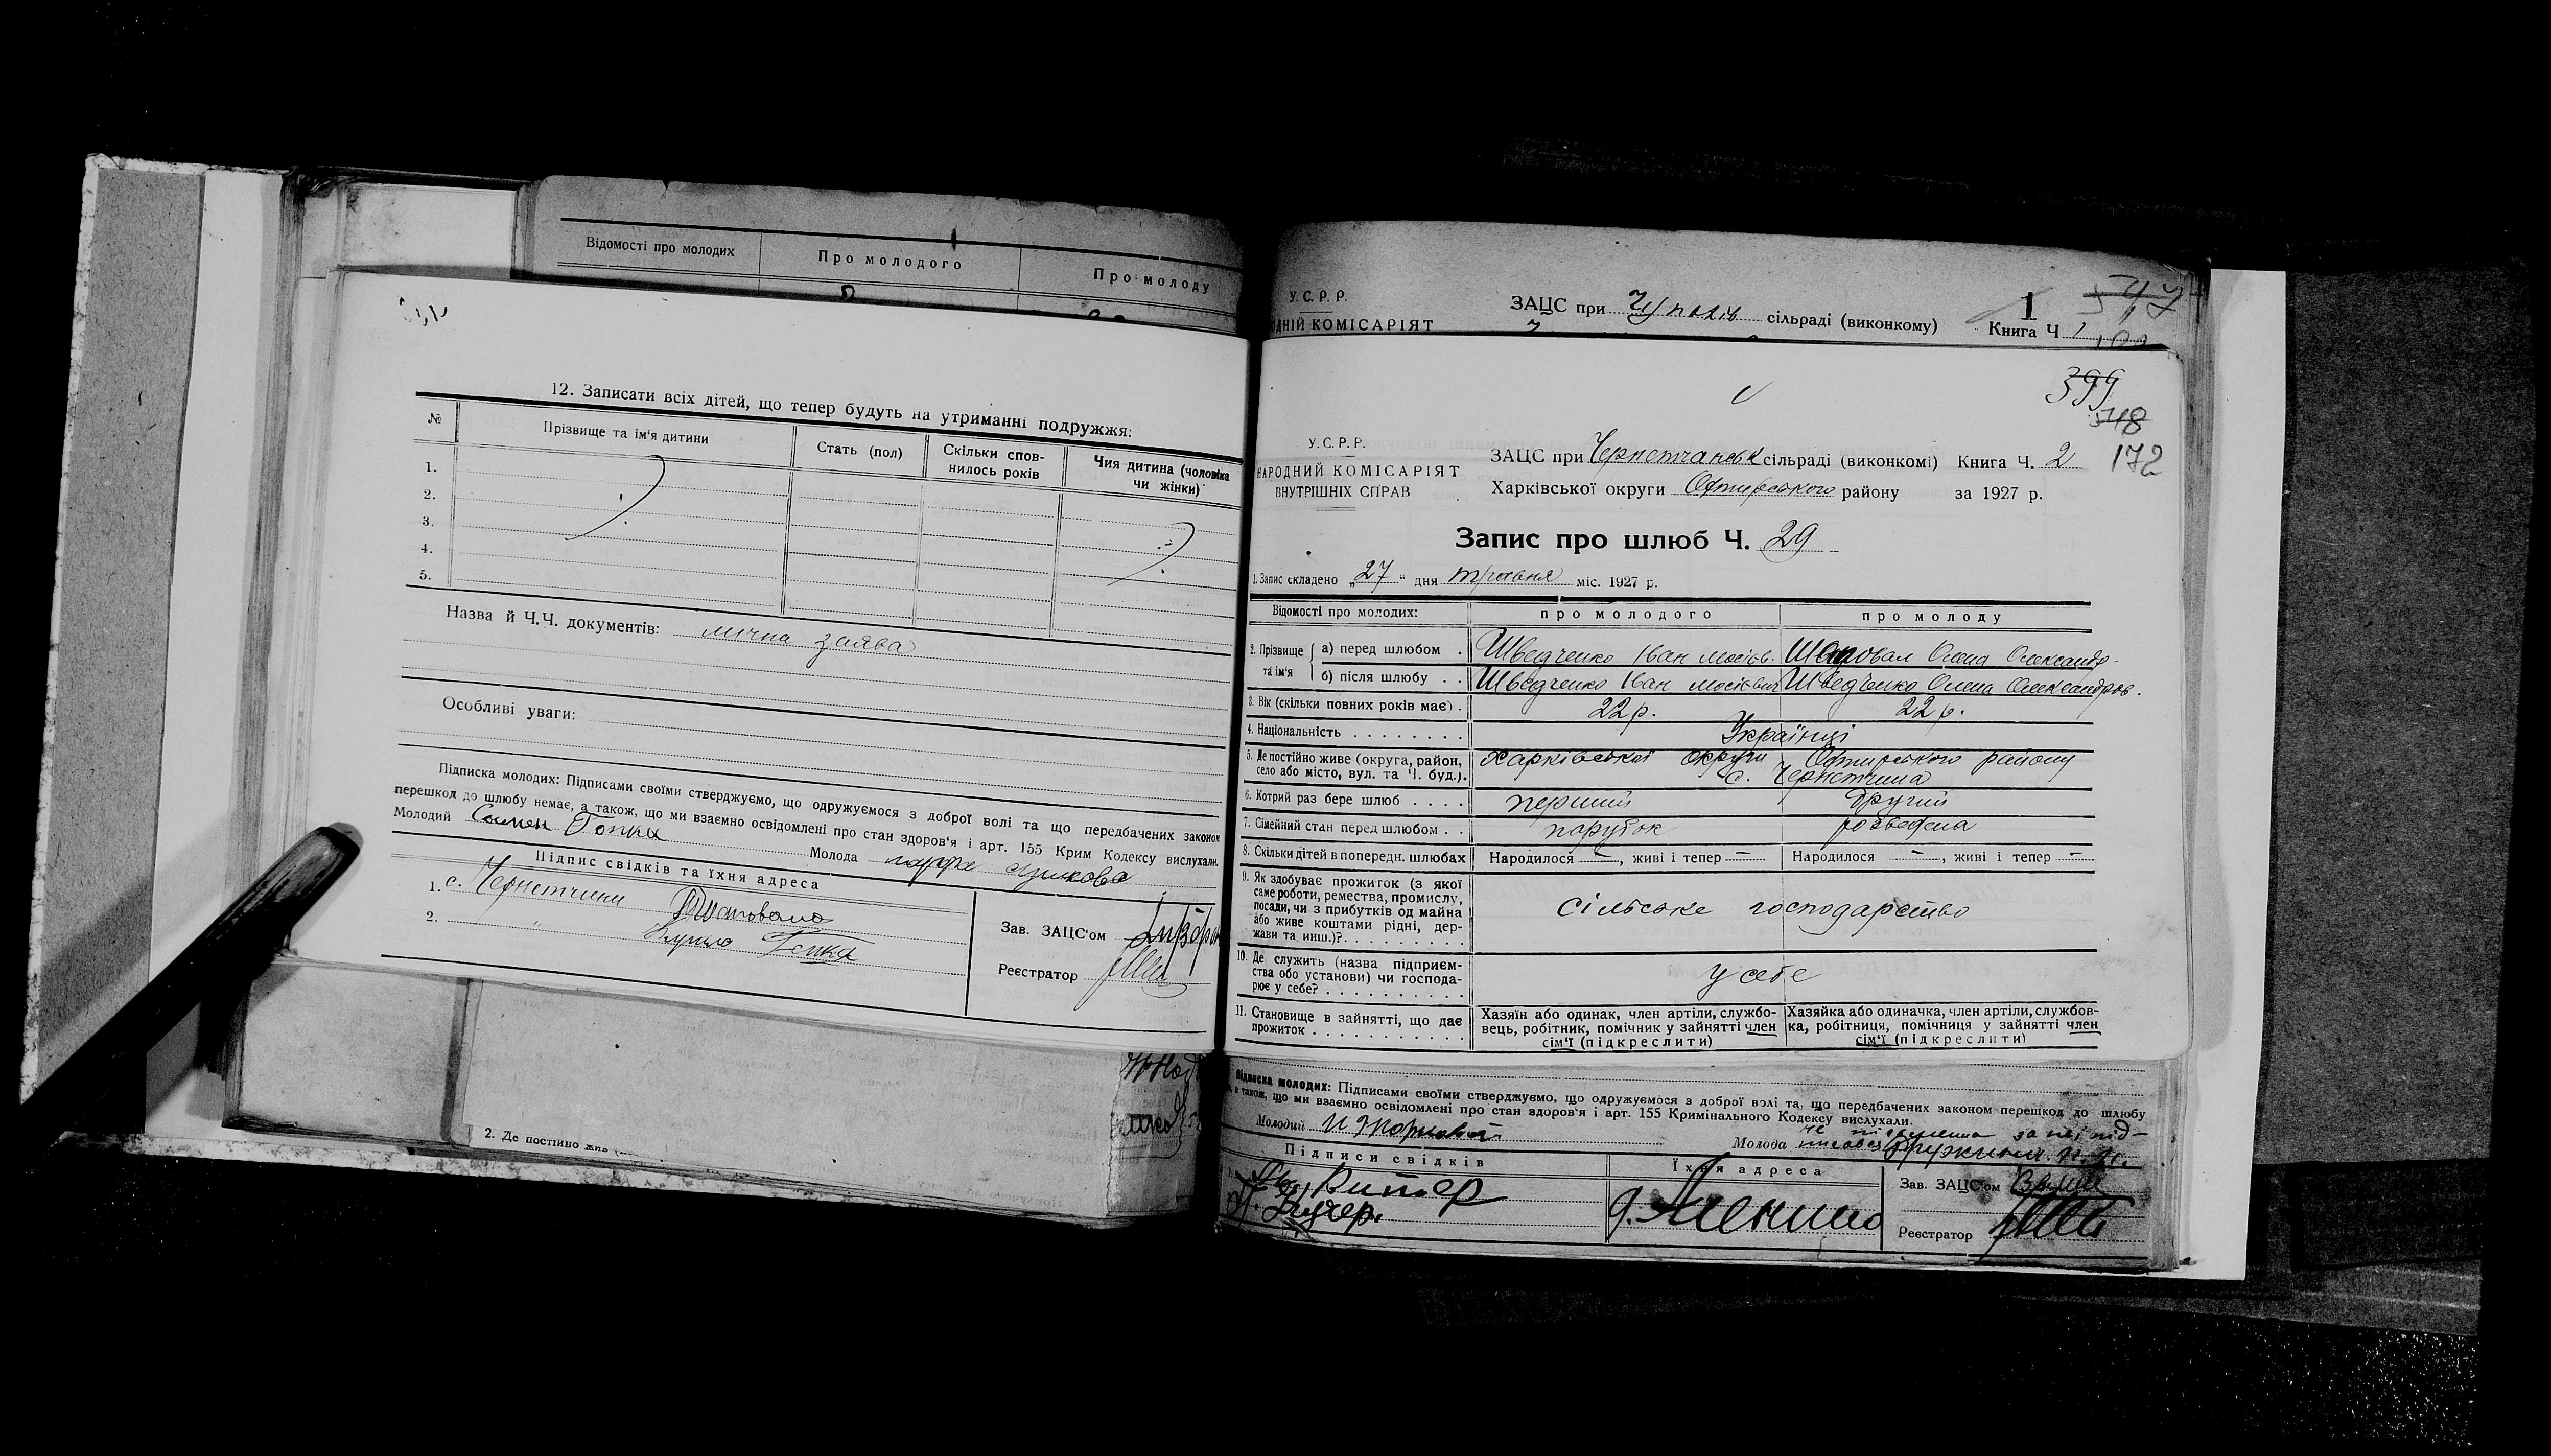 Відомості про молодих
Про молодого
Про молоду
12. Записати всіх дітей, що тепер будуть на утриманні подружжя:
№
Прізвище та ім'я дитини
Стать (пол)
Скільки спов-
нилось років
Чия дитина (чоловіка
чи жінки)
1.
2.
3.
4.
5.
Назва й Ч.Ч. документів: лічна заява
Особливі уваги:
Підписка молодих: Підписами своїми стверджуємо, що одружуємося з доброї волі та що передбачених законом
перешкод до шлюбу немає, а також, що ми взаємно освідомлені про стан здоров'я і арт. 155 Крим Кодексу вислухали.
Молодий Семен Гопка Молода
Підпис свідків та їхня адреса
1. с. Чернетчини
2. " Гопка
Зав. ЗАЦС'ом
Реєстратор
2. Де постійно жив
У.С.Р.Р.
ОДНІЙ КОМІСАРІЯТ
ЗАЦС при Чупахів сільраді (виконкому)
1
Книга Ч 1
547
399
548
172
У.С.Р.Р.
НАРОДНИЙ КОМІСАРІЯТ
ВНУТРІШНІХ СПРАВ
ЗАЦС при Чернетчанськ сільраді (виконкомі) Книга Ч. 2
Харківської округи Охтирського району за 1927 р.
Запис про шлюб Ч. 29
1. Запис складено „27“ дня травня міс. 1927 р.
Відомості про молодих:
про молодого
про молоду
2. Прізвище та ім'я
а) перед шлюбом . Шведченко Іван Мосієв. Шаповал Олена Олександр.
б) після шлюбу . . Шведченко Іван Мосієвич Шведченко Олена Олександров.
3. Вік (скільки повних років має) . 22 р. 22 р.
4. Національність . . . . . . . . Українці
5. Де постійно живе (округа, район, Харківської округи Охтирського району
село або місто, вул. та Ч. буд.). с. Чернетчина
6. Котрий раз бере шлюб . . . . перший другий
7. Сімейний стан перед шлюбом . . парубок розведена
8. Скільки дітей в попередн. шлюбах Народилося —, живі і тепер — Народилося —, живі і тепер —
9. Як здобуває прожиток (з якої
саме роботи, ремества, промислу,
посади, чи з прибутків од майна
або живе коштами рідні, дер-
жави та инш.)?. . . . . . . . . .
сільське господарство
10. Де служить (назва підприєм-
ства обо установи) чи господа-
рює у себе? . . . . . . . . . . .
у себе
11. Становище в зайнятті, що дає
прожиток . . . . . . . . . . .
Хазяїн або одинак, член артіли, службо-
вець, робітник, помічник у зайнятті член
сім'ї (підкреслити)
Хазяйка або одиначка, член артіли, службов-
ка, робітниця, помічниця у зайнятті член
сім'ї (підкреслити)
Підписка молодих: Підписами своїми стверджуємо, що одружуємося з доброї волі та, що передбачених законом перешкод до шлюбу
а також, що ми взаємно освідомлені про стан здоров'я і арт. 155 Кримінального Кодексу вислухали.
Молодий
Молода
Підписи свідків
Їхня адреса
Зав. ЗАЦС'ом
Реєстратор